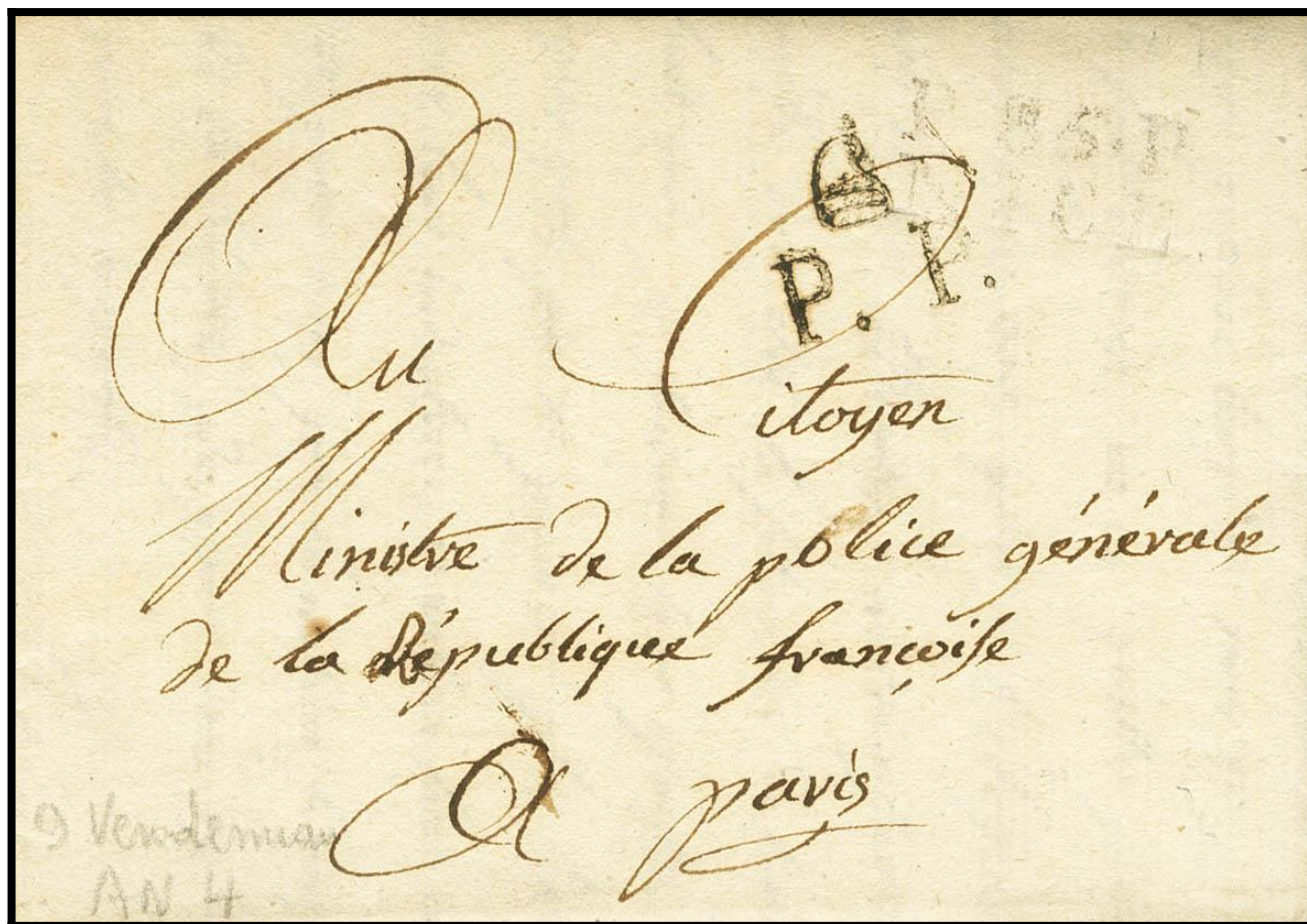 P 85. P
NICE
P. P.
Au Citoyen
Ministre de la police générale
de la République françoise
A paris
9 Vendemiai
AN 4